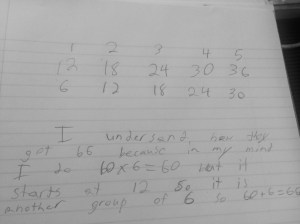 1 2 3 4 5
12 18 24 30 36
6 12 18 24 30
I undersand how thy
got 66 because in my mind
I do 60x6=60 but it
starts at 12 so it is
another group of 6 so 60+6=66